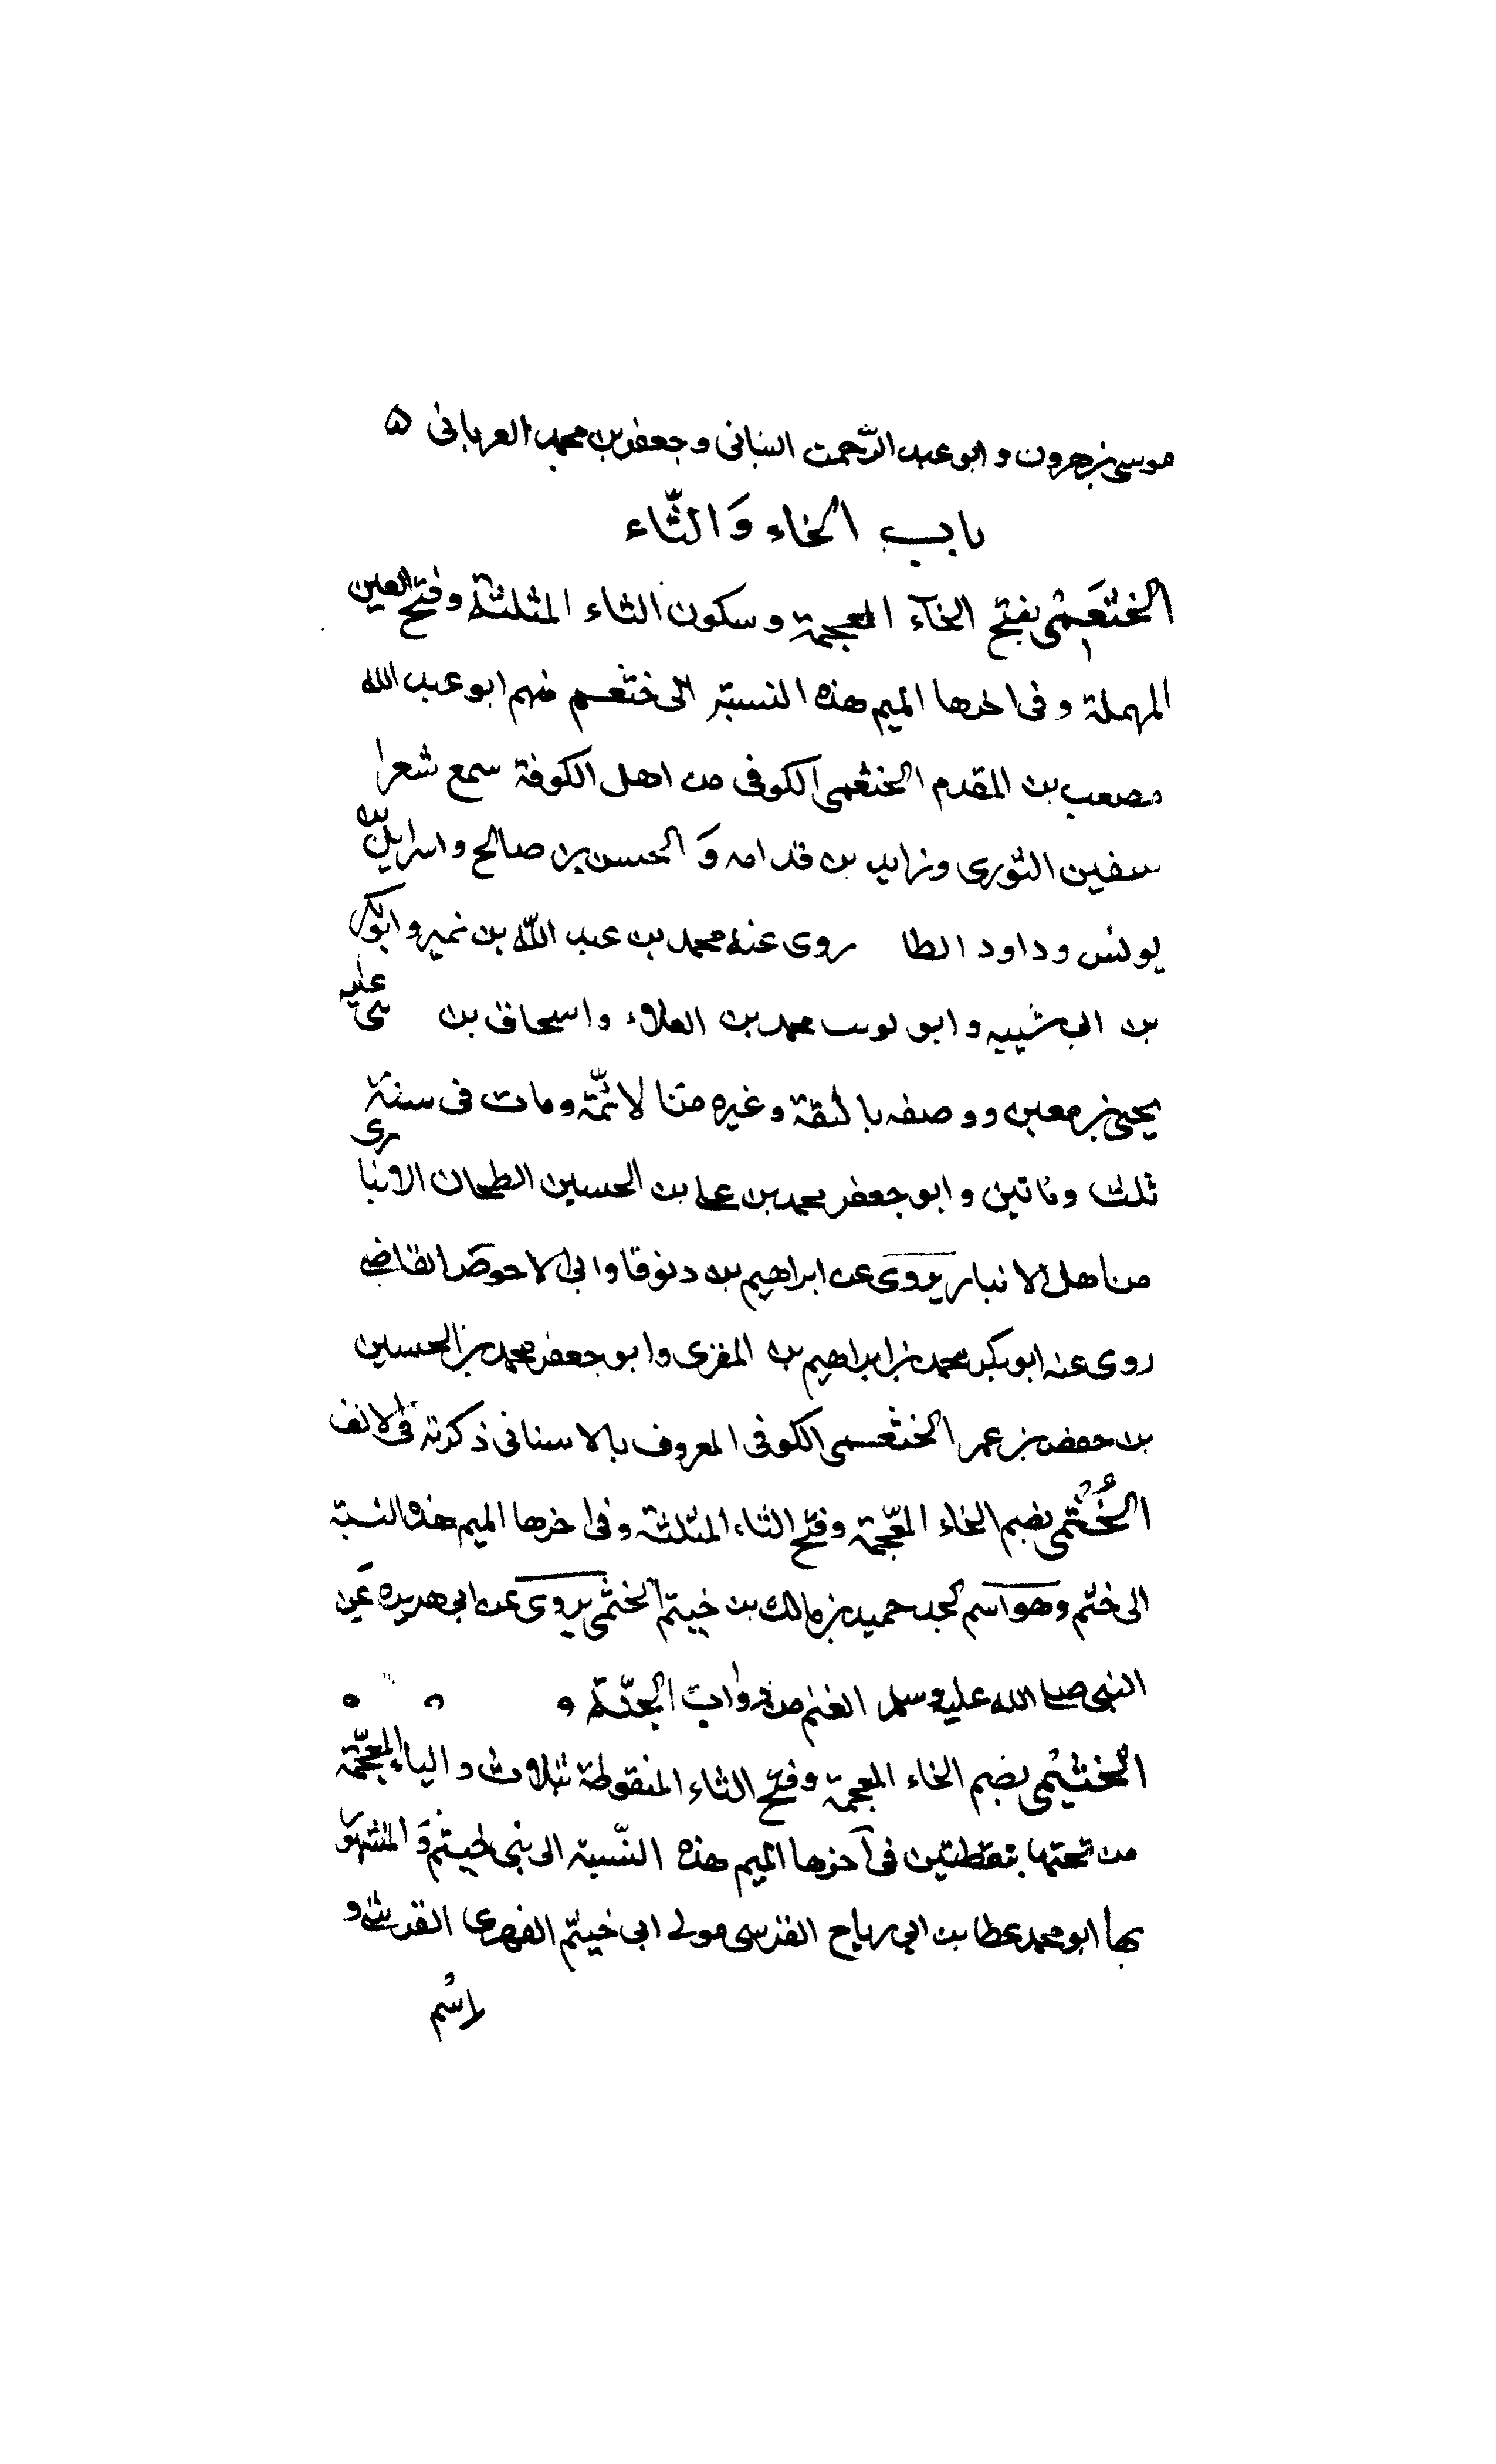 موسى بن هرون وابو عبد الرَّحمن البنانى وجعفر بن محمد العربانى ه
باب الخاء وَالثَّاء
الخثعَمْى بفتح الخآء المعجمة وسكون الثاء المثلثة وفتح العين
المهملة وفى اخرها الميم هذه النسبة الى خثعم منهم ابو عبد الله
مصعب بن المقدم الخثعمى الكوفى من اهل الكوفة سمع شعرا
سفين الثورى وزايد بن قدامه وَ الحسن بن صالح واسرايل بن
يونس وداود الطا روى عنه محمد بن عبد اللّه بن نمير وابو بكر
بن ابى شيبه وابو لوىب محمد بن العلاء واسحاق بن عليه
يحيى بن معين ووصفه بالثقة وغيره من الائمّة ومات فى سنة
ثلث وماتين وابو جعفر محمد بن على بن الحسين الطحان الانبارى
من اهل الانبار يروى عن ابراهيم بن دنوقا وابى الاحوص القاضى
روى عنه ابو بكر محمد بن ابراهيم بن المقرى وابو جعفر محمد بن الحسين
بن حفص بن عمر الخثعمى الكوفى المعروف بالاسنانى ذكرته فى الالف
الخُثَمى بضم الخاء المعجمة وفتح الثاء المثلثة وفى اخرها الميم هذه النسبة
الى خثم وهو اسم لجد حميد بن مالك بن خيثم الخثمى يروى عن ابى هريره عَن
النبى صلى الله عليه وسلم الغنم من دواب الجنّة ه ه ه
الخثيْمى بضم الخاء المعجمة وفتح الثاء المنقوطة بثلاث والياء المعجمة
من تحتها بنقطتين فى آخرها الميم هذه النّسبة الى بنى خيثم وَ المشهور
بها ابو محمد عطا بن ابى رباح القرسى مولى ابى خيثم الفهرى القرشى و
اسم